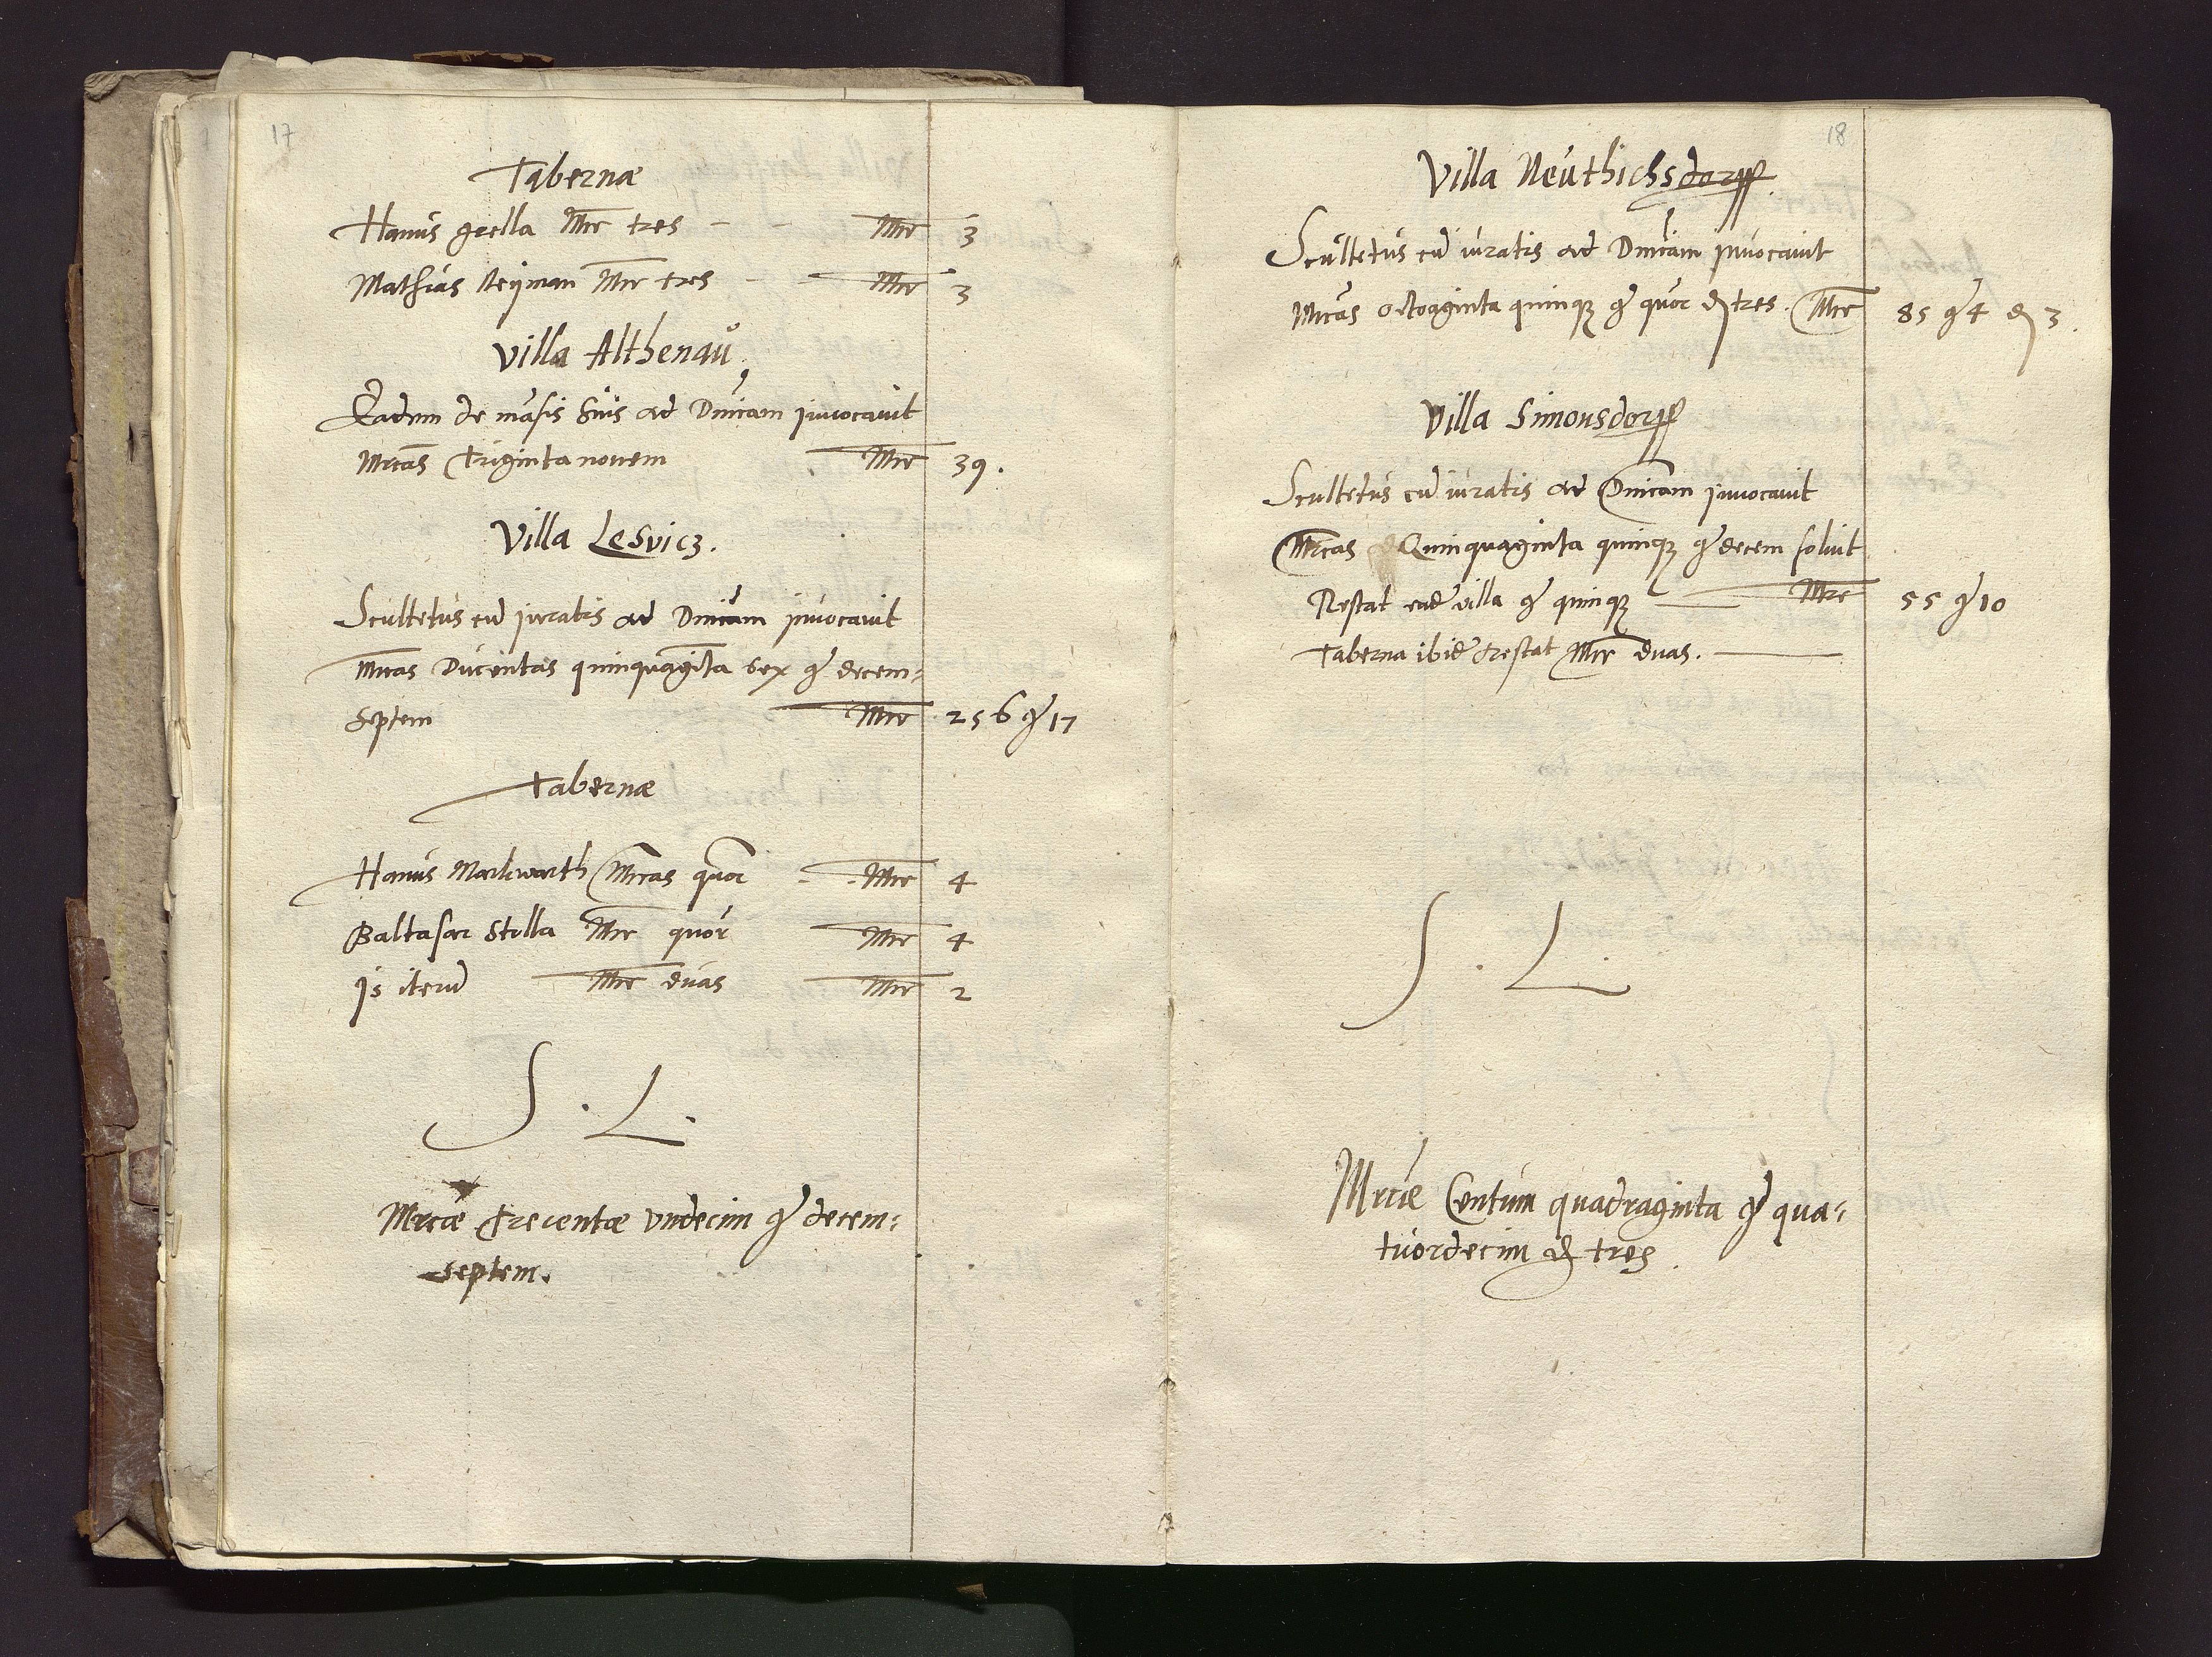 17
Tabernæ
Hanus grella Mrc tres - - Mrc 3
Mathias Neÿman Mrc tres - Mrc 3
Villa Althenaů
Eadem de mãsis suis ad Dnicam jnuocauit
Mrcas Triginta nouem Mrc 39.
Villa Lesvicz.
Scultetus cũ juratis ad Dnicam jnuocauit
Mrcas Ducentas quinquaginta sex gͬ decem-
septem Mrc 256 gͬ 17
Tabernæ
Hanus Markwarth Mrcas quor - Mrc 4
Baltasar Stella Mrc quor Mrc 4
Js iterũ Mrc duas Mrc 2
S. L.
Mrcæ Trecentæ vndecim gͬ decem-
septem.
18
Villa Neuthichsdorff
Scultetus cũ iuratis ad Dnicam jnuocauit
Mrcas octoaginta quinqʒ gͬ quor ₰ tres. Mrc 85 gͬ 4 ₰ 3.
Villa Simonsdorff
Scultetus cũ iuratis ad Dnicam jnuocauit
Mrcas Quinquaginta quinqʒ gͬ decem soluit
Restat eadẽ villa gͬ quinqʒ Mrc 55 gͬ 10
Taberna ibidẽ restat Mrc duas.
S. L.
Mrcæ Centum quadraginta gͬ qua-
tuordecim ₰ tres.